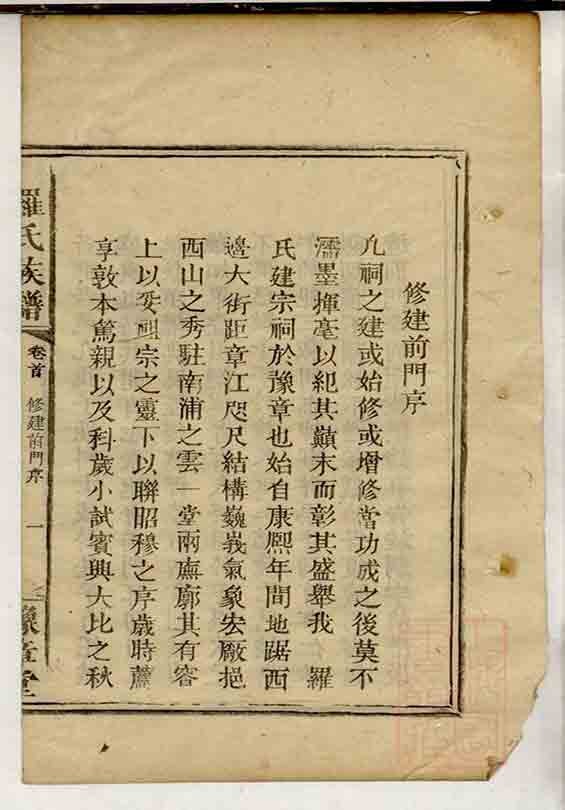 修建前門序
凡祠之建或始修或增修當功成之後莫不
濡墨揮毫以紀其巔末而彰其盛舉我 羅
氏建宗祠於豫章也始自康熙年間地踞西
邊大街距章江咫尺結構巍峩氣象宏厰挹
西山之秀駐南浦之雲一堂兩廡廓其有容
上以妥祖宗之靈下以聯昭穆之序歲時薦
享敦本篤親以及科歲小試賓興大比之秋
羅氏族譜
卷首
修建前門序
一
豫章堂